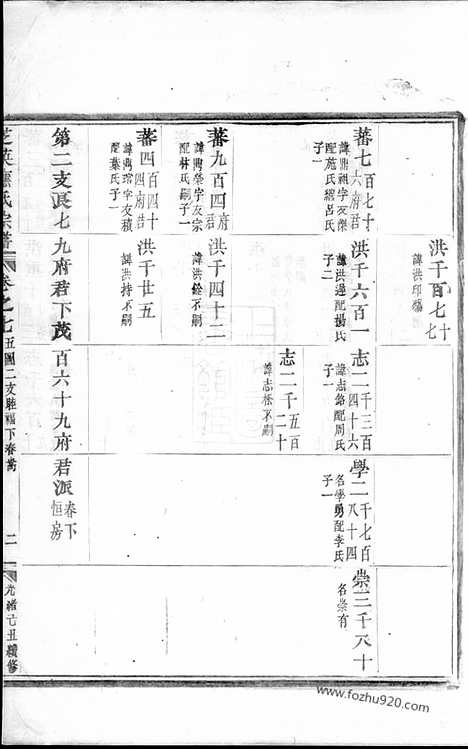 洪千百七十七
諱洪印殤
蕃七百七十六府君
諱鼎祖字友傑
配施氏繼呂氏
子一
洪千六百一
諱洪邊配楊氏
子二
志二千三百四十六
諱志銘配周氏
子一
學二千七百八十四
名學勇配李氏
子一
崇三千八十
名崇有
志二千五百二十
諱志 不嗣
蕃九百四府君
諱鼎榮字友宗
配林氏嗣子一
洪千四十二
諱洪銓不嗣
蕃四百四十四府君
諱鼎琯字友積
配葉氏子一
洪千廿五
諱洪持不嗣
第二支良七九府君下茂百六十九府君派春下恒房
芝英應氏宗譜
卷之七
五圖二支睦福下春嵩
二
光緒己丑續修
www.fozhu920.com